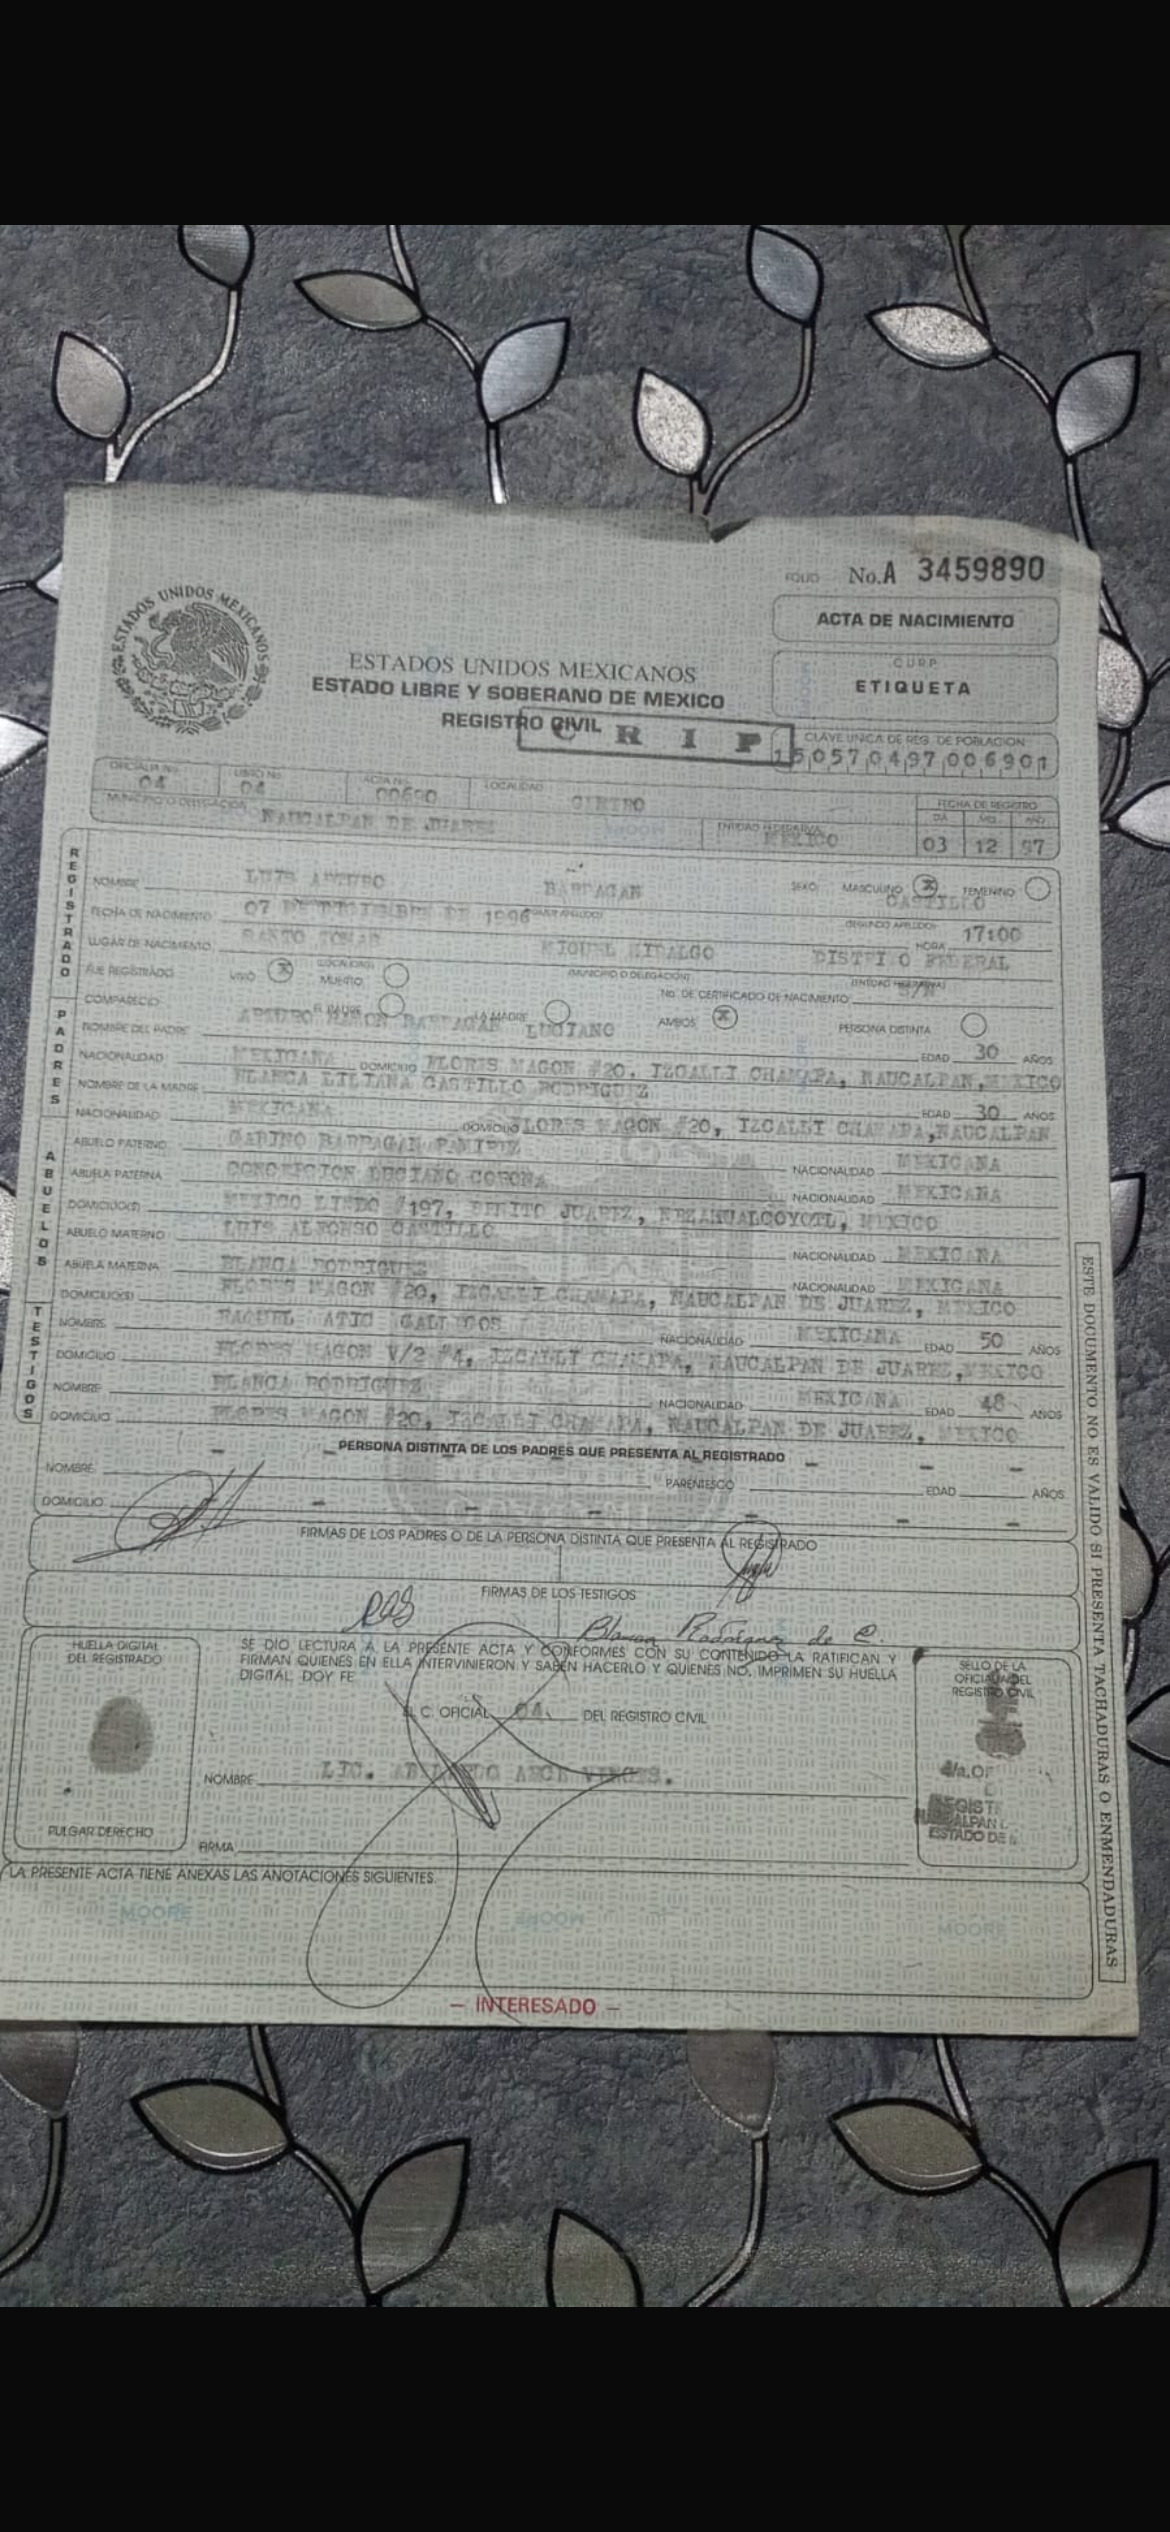 FOLIO No.A 3459890
ACTA DE NACIMIENTO
ESTADOS UNIDOS MEXICANOS
CURP
ETIQUETA
ESTADOS UNIDOS MEXICANOS
ESTADO LIBRE Y SOBERANO DE MEXICO
REGISTRO CIVIL
C R I P
CLAVE UNICA DE REG. DE POBLACION
150570497006901
OFICIALIA No. 04 LIBRO No. 04 ACTA No. 00690 LOCALIDAD CENTRO
FECHA DE REGISTRO
MUNICIPIO O DELEGACION NAUCALPAN DE JUAREZ ENTIDAD FEDERATIVA MEXICO
DIA MES AÑO
03 12 97
REGISTRADO
NOMBRE LUIS ARTURO BARRAGAN CASTILLO SEXO MASCULINO X FEMENINO
(PRIMER APELLIDO) (SEGUNDO APELLIDO)
FECHA DE NACIMIENTO 07 DE DICIEMBRE DE 1996 HORA 17:00
LUGAR DE NACIMIENTO SANTO TOMAS MIGUEL HIDALGO DISTRITO FEDERAL
(LOCALIDAD) (MUNICIPIO O DELEGACION) (ENTIDAD FEDERATIVA)
FUE REGISTRADO VIVO X MUERTO No. DE CERTIFICADO DE NACIMIENTO S/N
PADRES
COMPARECIO EL PADRE LA MADRE AMBOS X PERSONA DISTINTA
NOMBRE DEL PADRE ARTURO RAMON BARRAGAN LUCIANO EDAD 30 AÑOS
NACIONALIDAD MEXICANA DOMICILIO FLORES MAGON #20, IZCALLI CHAMAPA, NAUCALPAN, MEXICO
NOMBRE DE LA MADRE BLANCA LILIANA CASTILLO RODRIGUEZ EDAD 30 AÑOS
NACIONALIDAD MEXICANA DOMICILIO FLORES MAGON #20, IZCALLI CHAMAPA, NAUCALPAN
ABUELOS
ABUELO PATERNO GABINO BARRAGAN RAMIREZ NACIONALIDAD MEXICANA
ABUELA PATERNA CONCEPCION LUCIANO CORONA NACIONALIDAD MEXICANA
DOMICILIO(S) MEXICO LINDO #197, BENITO JUAREZ, NEZAHUALCOYOTL, MEXICO
ABUELO MATERNO LUIS ALFONSO CASTILLO NACIONALIDAD MEXICANA
ABUELA MATERNA BLANCA RODRIGUEZ NACIONALIDAD MEXICANA
DOMICILIO(S) FLORES MAGON #20, IZCALLI CHAMAPA, NAUCALPAN DE JUAREZ, MEXICO
TESTIGOS
NOMBRE RAQUEL GALLEGOS NACIONALIDAD MEXICANA EDAD 50 AÑOS
DOMICILIO FLORES MAGON V/2 #4, IZCALLI CHAMAPA, NAUCALPAN DE JUAREZ, MEXICO
NOMBRE BLANCA RODRIGUEZ NACIONALIDAD MEXICANA EDAD 48 AÑOS
DOMICILIO FLORES MAGON #20, IZCALLI CHAMAPA, NAUCALPAN DE JUAREZ, MEXICO
PERSONA DISTINTA DE LOS PADRES QUE PRESENTA AL REGISTRADO
NOMBRE PARENTESCO EDAD AÑOS
DOMICILIO
FIRMAS DE LOS PADRES O DE LA PERSONA DISTINTA QUE PRESENTA AL REGISTRADO
FIRMAS DE LOS TESTIGOS
Blanca Rodriguez de C.
HUELLA DIGITAL
DEL REGISTRADO
PULGAR DERECHO
SE DIO LECTURA A LA PRESENTE ACTA Y CONFORMES CON SU CONTENIDO LA RATIFICAN Y
FIRMAN QUIENES EN ELLA INTERVINIERON Y SABEN HACERLO Y QUIENES NO, IMPRIMEN SU HUELLA
DIGITAL. DOY FE
EL C. OFICIAL 04 DEL REGISTRO CIVIL
NOMBRE LIC.
FIRMA
SELLO DE LA
OFICIALIA DEL
REGISTRO CIVIL
4/a. OF
REGIST
ESTADO DE
LA PRESENTE ACTA TIENE ANEXAS LAS ANOTACIONES SIGUIENTES.
MOORE MOORE MOORE
— INTERESADO —
ESTE DOCUMENTO NO ES VALIDO SI PRESENTA TACHADURAS O ENMENDADURAS